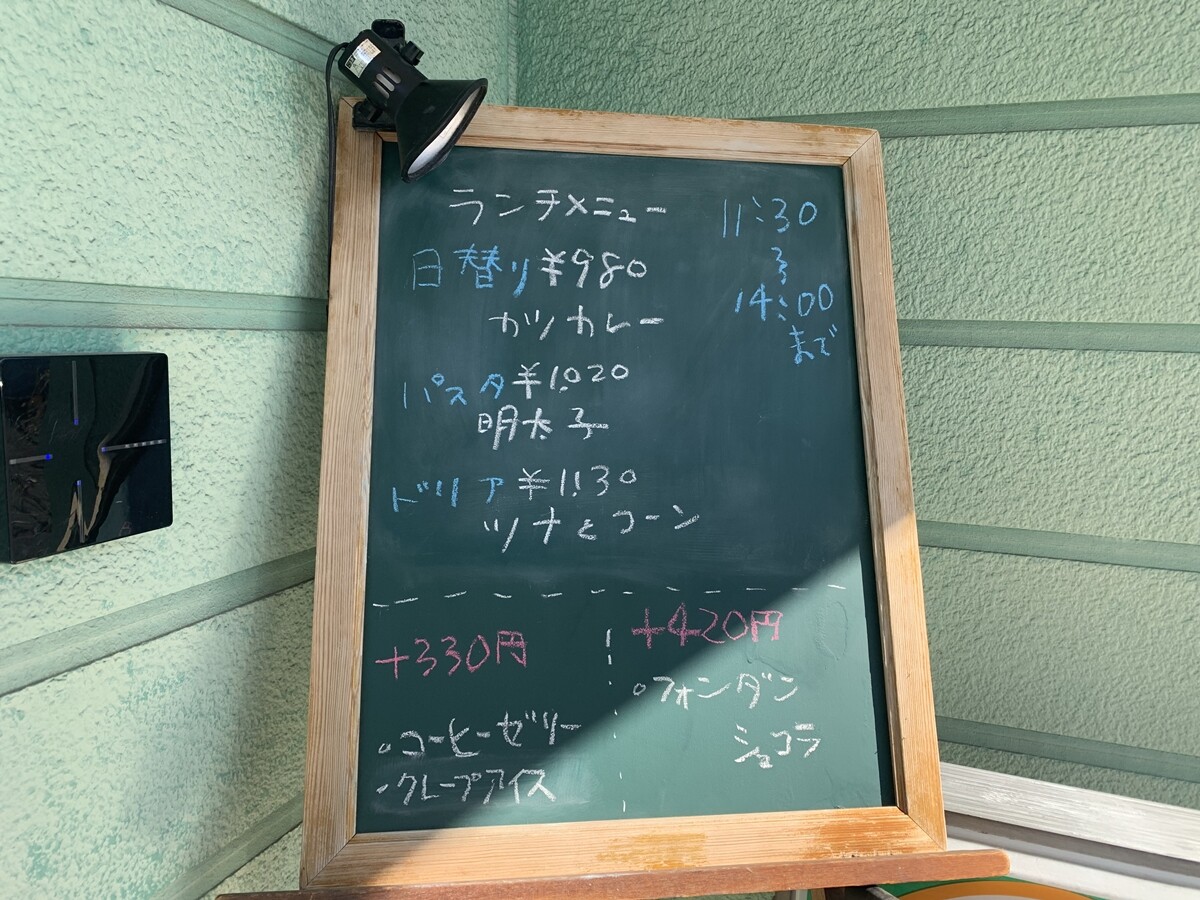 ランチメニュー
11:30
〜
14:00
まで
日替り ¥980
カツカレー
パスタ ¥1,020
明太子
ドリア ¥1,130
ツナとコーン
+330円
・コーヒーゼリー
・クレープアイス
+420円
・フォンダン
ショコラ